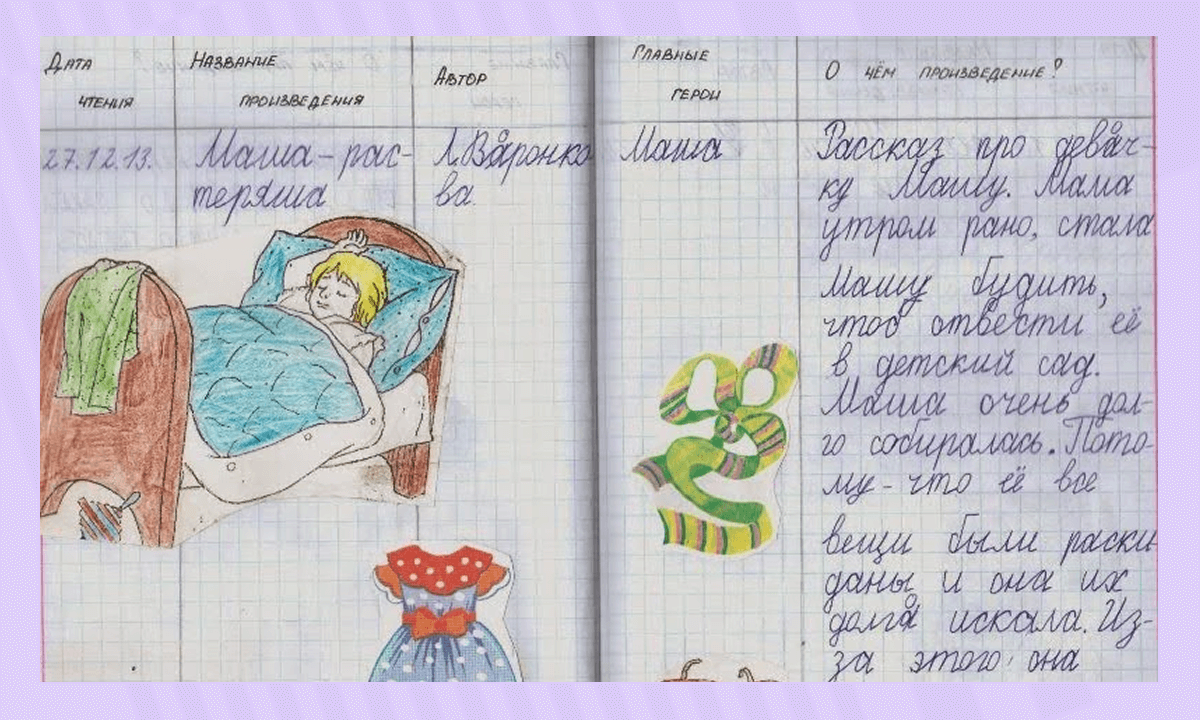 Дата
чтения
Название
произведения
Автор
Главные
герои
О чём произведение?
27.12.13.
Маша-рас-
теряша
Л.Воронко
ва
Маша
Рассказ про девоч-
ку Машу. Мама
утром рано, стала
Машу будить,
чтоб отвести её
в детский сад.
Маша очень дол-
го собиралась. Пото-
му-что её все
вещи были раски
даны и она их
долго искала. Из-
за этого она